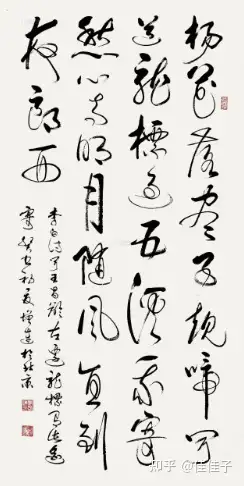 杨花落尽子规啼闻
道龍標过五溪我寄
愁心与明月随风直到
夜郎西
李白诗闻王昌龄左迁龍標遥有此
寄
知乎 @佳佳子